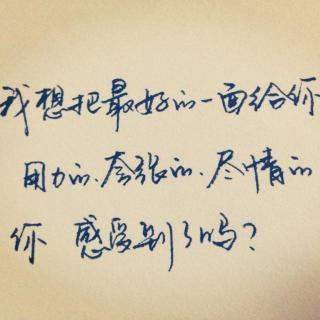 我想把最好的一面给你
用力的、夸张的、尽情的
你 感受到了吗?